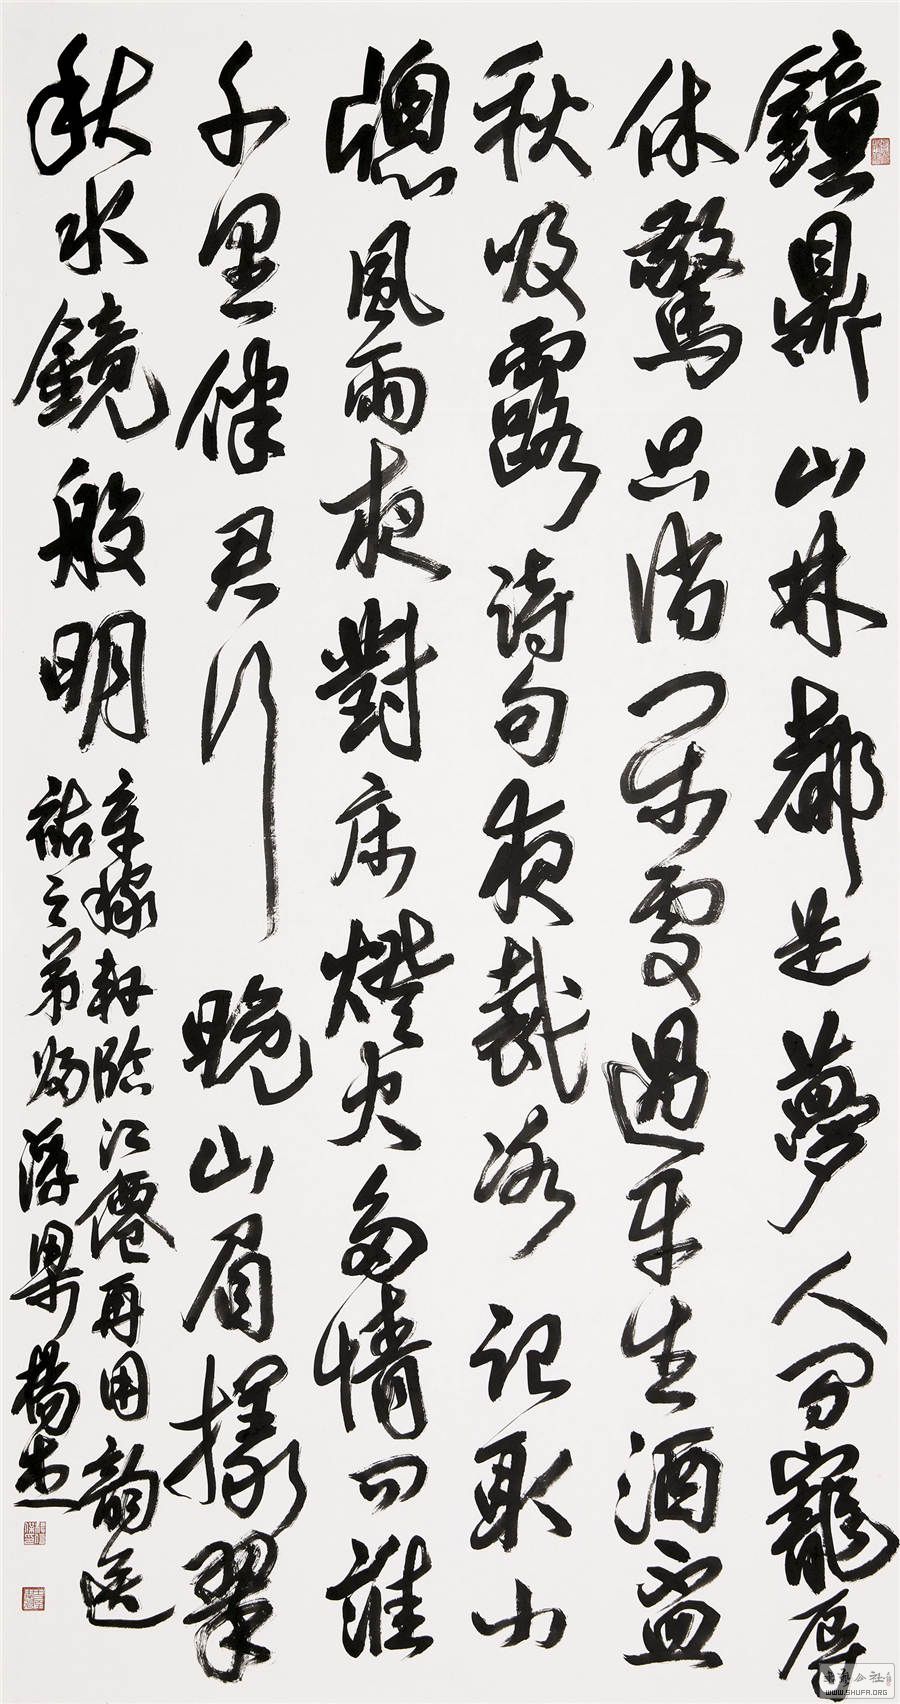 鐘鼎山林都是夢人間寵辱
休驚只消閒處過平生酒盃
秋吸露詩句夜裁冰記取小
牕風雨夜對床燈火多情問誰
千里伴君行晚山眉樣翠
秋水鏡般明
辛稼軒臨江僊再用韵送
祐之弟歸浮梁楊
書藝公社
WWW.SHUFA.ORG